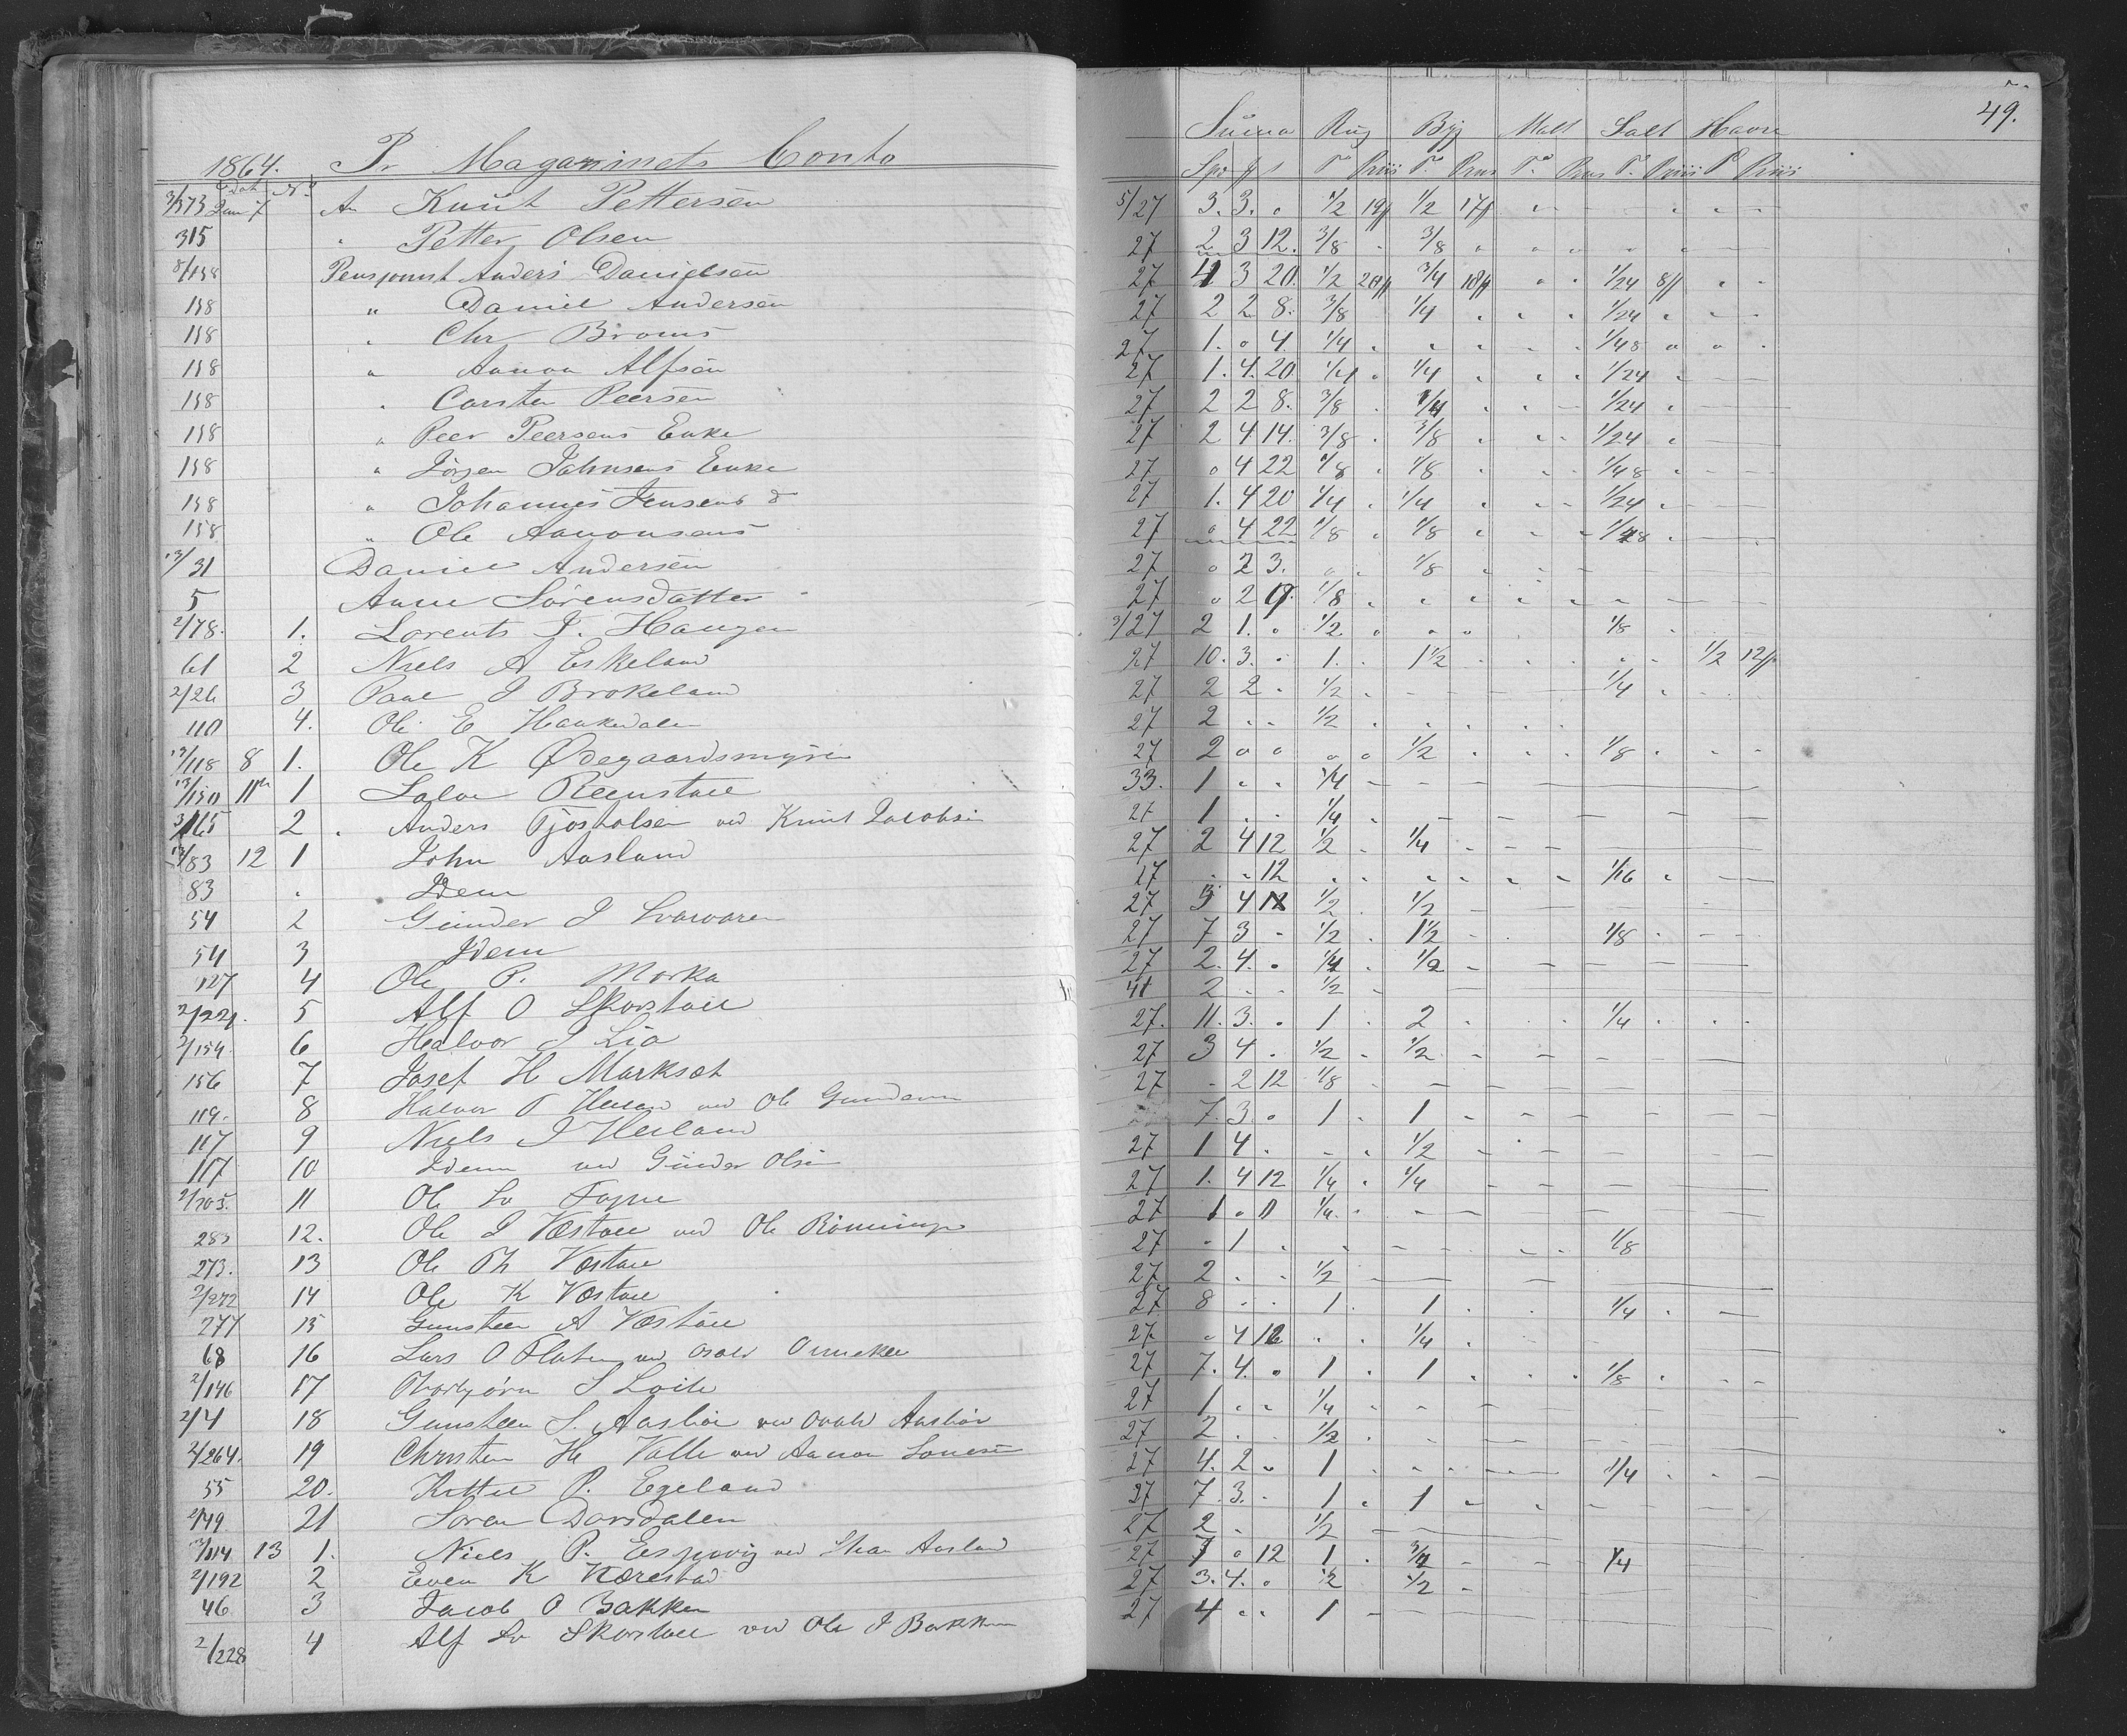 1864. Pr Magazinets Conto
Dat No
3/373 Juni 7 An Knut Pettersen
315 " Petter Olsen
8/158 Anders Danielsen
158 " Daniel Andersen
158 " Chr Broms
158 " Aanon Alfsen
158 " Carsten Peersen
158 " Peer Peersens Enke
158 " Jörgen Jahnsens Enke
158 " Johannes Jensens do
158 " Ole Aanonsens
13/31 Daniel Andersen
5 Anne Sörensdatter
2/78. 1. Lorents J. Haugen
61 2 Niels A Eskeland
2/26 3 Paul J Brokeland
110 4. Ole E Haukedalen
13/118 8 1. Ole K Ødegaardsmyren
13/150 11 1 Salve Reenstoel
3/165 2 Anders Tjostolsen ved Knut Jacobsen
13/83 12 1 John Aasland
83 " Idem
54 2 Gunder J
54 3 Idem
127 4 Ole P. Morka
2/221. 5 Alf O Skorstoel
2/154. 6 Halvor J Lia
156 7 Josef H Markset
119. 8 Halvor T ved Ole
117 9 Niels J Heiland
117 10 Idem ved Gunder Olsen
2/305. 11 Ole
285 12. Ole J Væstoel ved Ole Rönningen
273. 13 Ole Th Væstoel
2/272 14 Ole K Væstoel
277 15 Gunsteen A Væstöel
68 16 Lars O Flaten ved
2/146 17 Thorbjörn S Loite
2/4 18 Gunsteen S. Aasböe ved Aasböe
2/264. 19 Christen H Valle ved Aanon
55 20. Kittel P. Egeland
2/49 21 Sören Dorsdalen
13/114 13 1. Niels P. Espevig ved Aasland
2/192 2 Even K Nærestad
46 3 Jacob O Bakken
2/228 4 Alf Skorstoel ved Ole J Bakken
49.
Suma Rug Byg Malt Salt Havre
5/27 3. 3. " 1/2 19ß 1/2 17ß
27 2 3 12. 3/8 " 3/8
27 4 3 20. 1/2 20ß 3/4 18ß " " 1/24 8ß
27 2 2 8. 3/8 1/4 " " " 1/24
27 1. " 4. 1/4 " " " " " 1/48
27 1. 4. 20 1/4 " 1/4 " " 1/24
27 2 2 8. 3/8 " 1/4 " " 1/24
27 2 4 14. 3/8 " 3/8 " " 1/24
27 " 4 22 1/8 " 1/8 " " 1/48
27 1. 4 20 1/4 " 1/4 " " 1/24
27 " 4 22 1/8 " 1/8 " " 1/48
27 " 2 3. " " 1/8
27 " 2 9. 1/8
3/27 2 1. " 1/2 " " " 1/8
27 10. 3. " 1. " 1 1/2 " " " " " 1/2 12ß
27 2 2 " 1/2 " 1/4
27 2 " " 1/2
27 2 " " " " 1/2 " " " 1/8
33. 1 " " 1/4
27 1 " " 1/4
27 2 4 12 1/2 " 1/4
27 " " 12 " " " " " " 1/16
27 3 4 1/2 " 1/2
27 7 3 " 1/2 " 1 1/2 " 1/8
27 2. 4. " 1/4 " 1/2
41 2 " " 1/2
27. 11. 3. " 1 " 2 " " " 1/4
27 3 4 " 1/2 " 1/2
27 " 2 12 1/8
" 7. 3. " 1 " 1
27 1 4 " " " 1/2
27 1. 4 12 1/4 " 1/4
27 1 " " 1/4
27 " 1 " " " " " 1/8
27 2 " " 1/2
27 8 " " 1 " 1 " " 1/4
27 " 4 16 " " 1/4
27 7. 4. " 1 " 1 " " " 1/8
27 1 " " 1/4
27 2 " " 1/2
27 4. 2 " 1 " " " 1/4
27 7. 3. " 1 " 1
27 2 " 1/2
27 7 " 12 1 " 3/4 " 1/4
27 3. 4. " 1/2 1/2
27 4 " " 1